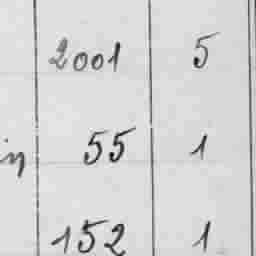 2001 5
in 55 1
152 1